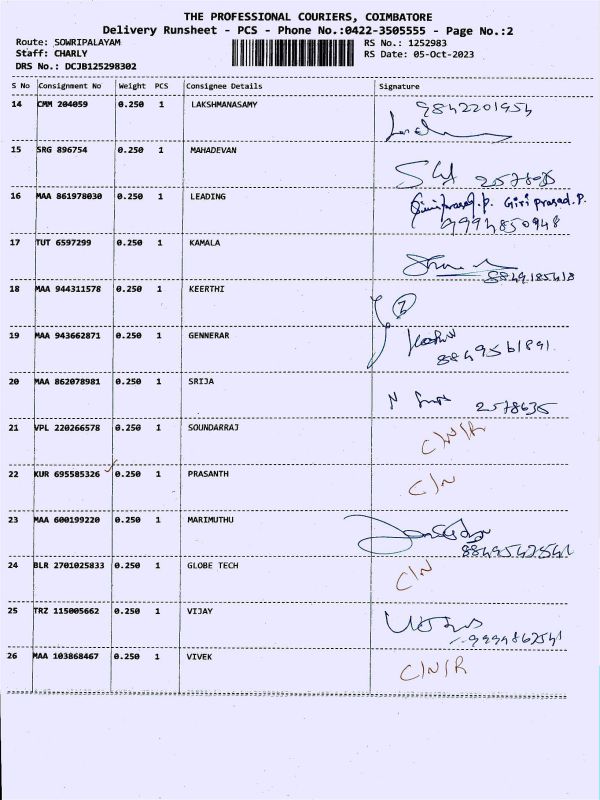 THE PROFESSIONAL COURIERS, COIMBATORE
Delivery Runsheet - PCS - Phone No.:0422-3505555 - Page No.:2
Route: SOWRIPALAYAM RS No.: 1252983
Staff: CHARLY RS Date: 05-Oct-2023
DRS No.: DCJB125298302
S No Consignment No Weight PCS Consignee Details Signature
14 CMM 204059 0.250 1 LAKSHMANASAMY 9842201954
15 SRG 896754 0.250 1 MAHADEVAN
16 MAA 861978030 0.250 1 LEADING Giri prasad.P.
9994850948
17 TUT 6597299 0.250 1 KAMALA
18 MAA 944311578 0.250 1 KEERTHI
19 MAA 943662871 0.250 1 GENNERAR
20 MAA 862078981 0.250 1 SRIJA 2578635
21 VPL 220266578 0.250 1 SOUNDARRAJ C/N/R
22 KUR 695585326 0.250 1 PRASANTH C/N
23 MAA 600199220 0.250 1 MARIMUTHU
24 BLR 2701025833 0.250 1 GLOBE TECH C/N
25 TRZ 115005662 0.250 1 VIJAY
26 MAA 103868467 0.250 1 VIVEK C/N/R